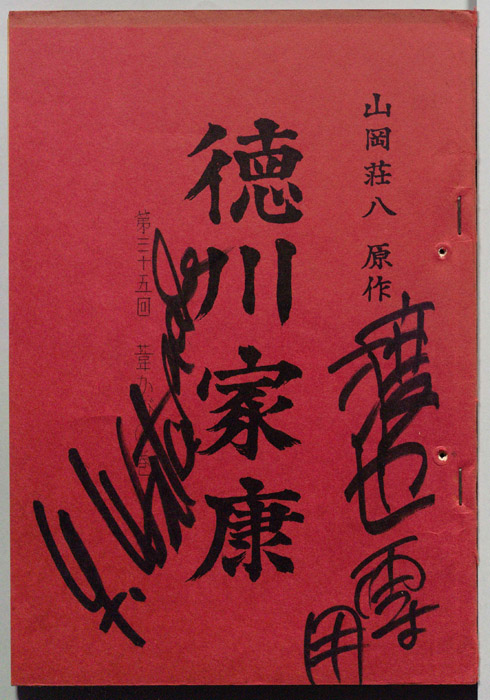 山岡荘八 原作
徳川家康
第三十五回 葦か
Y. Watanabe
用